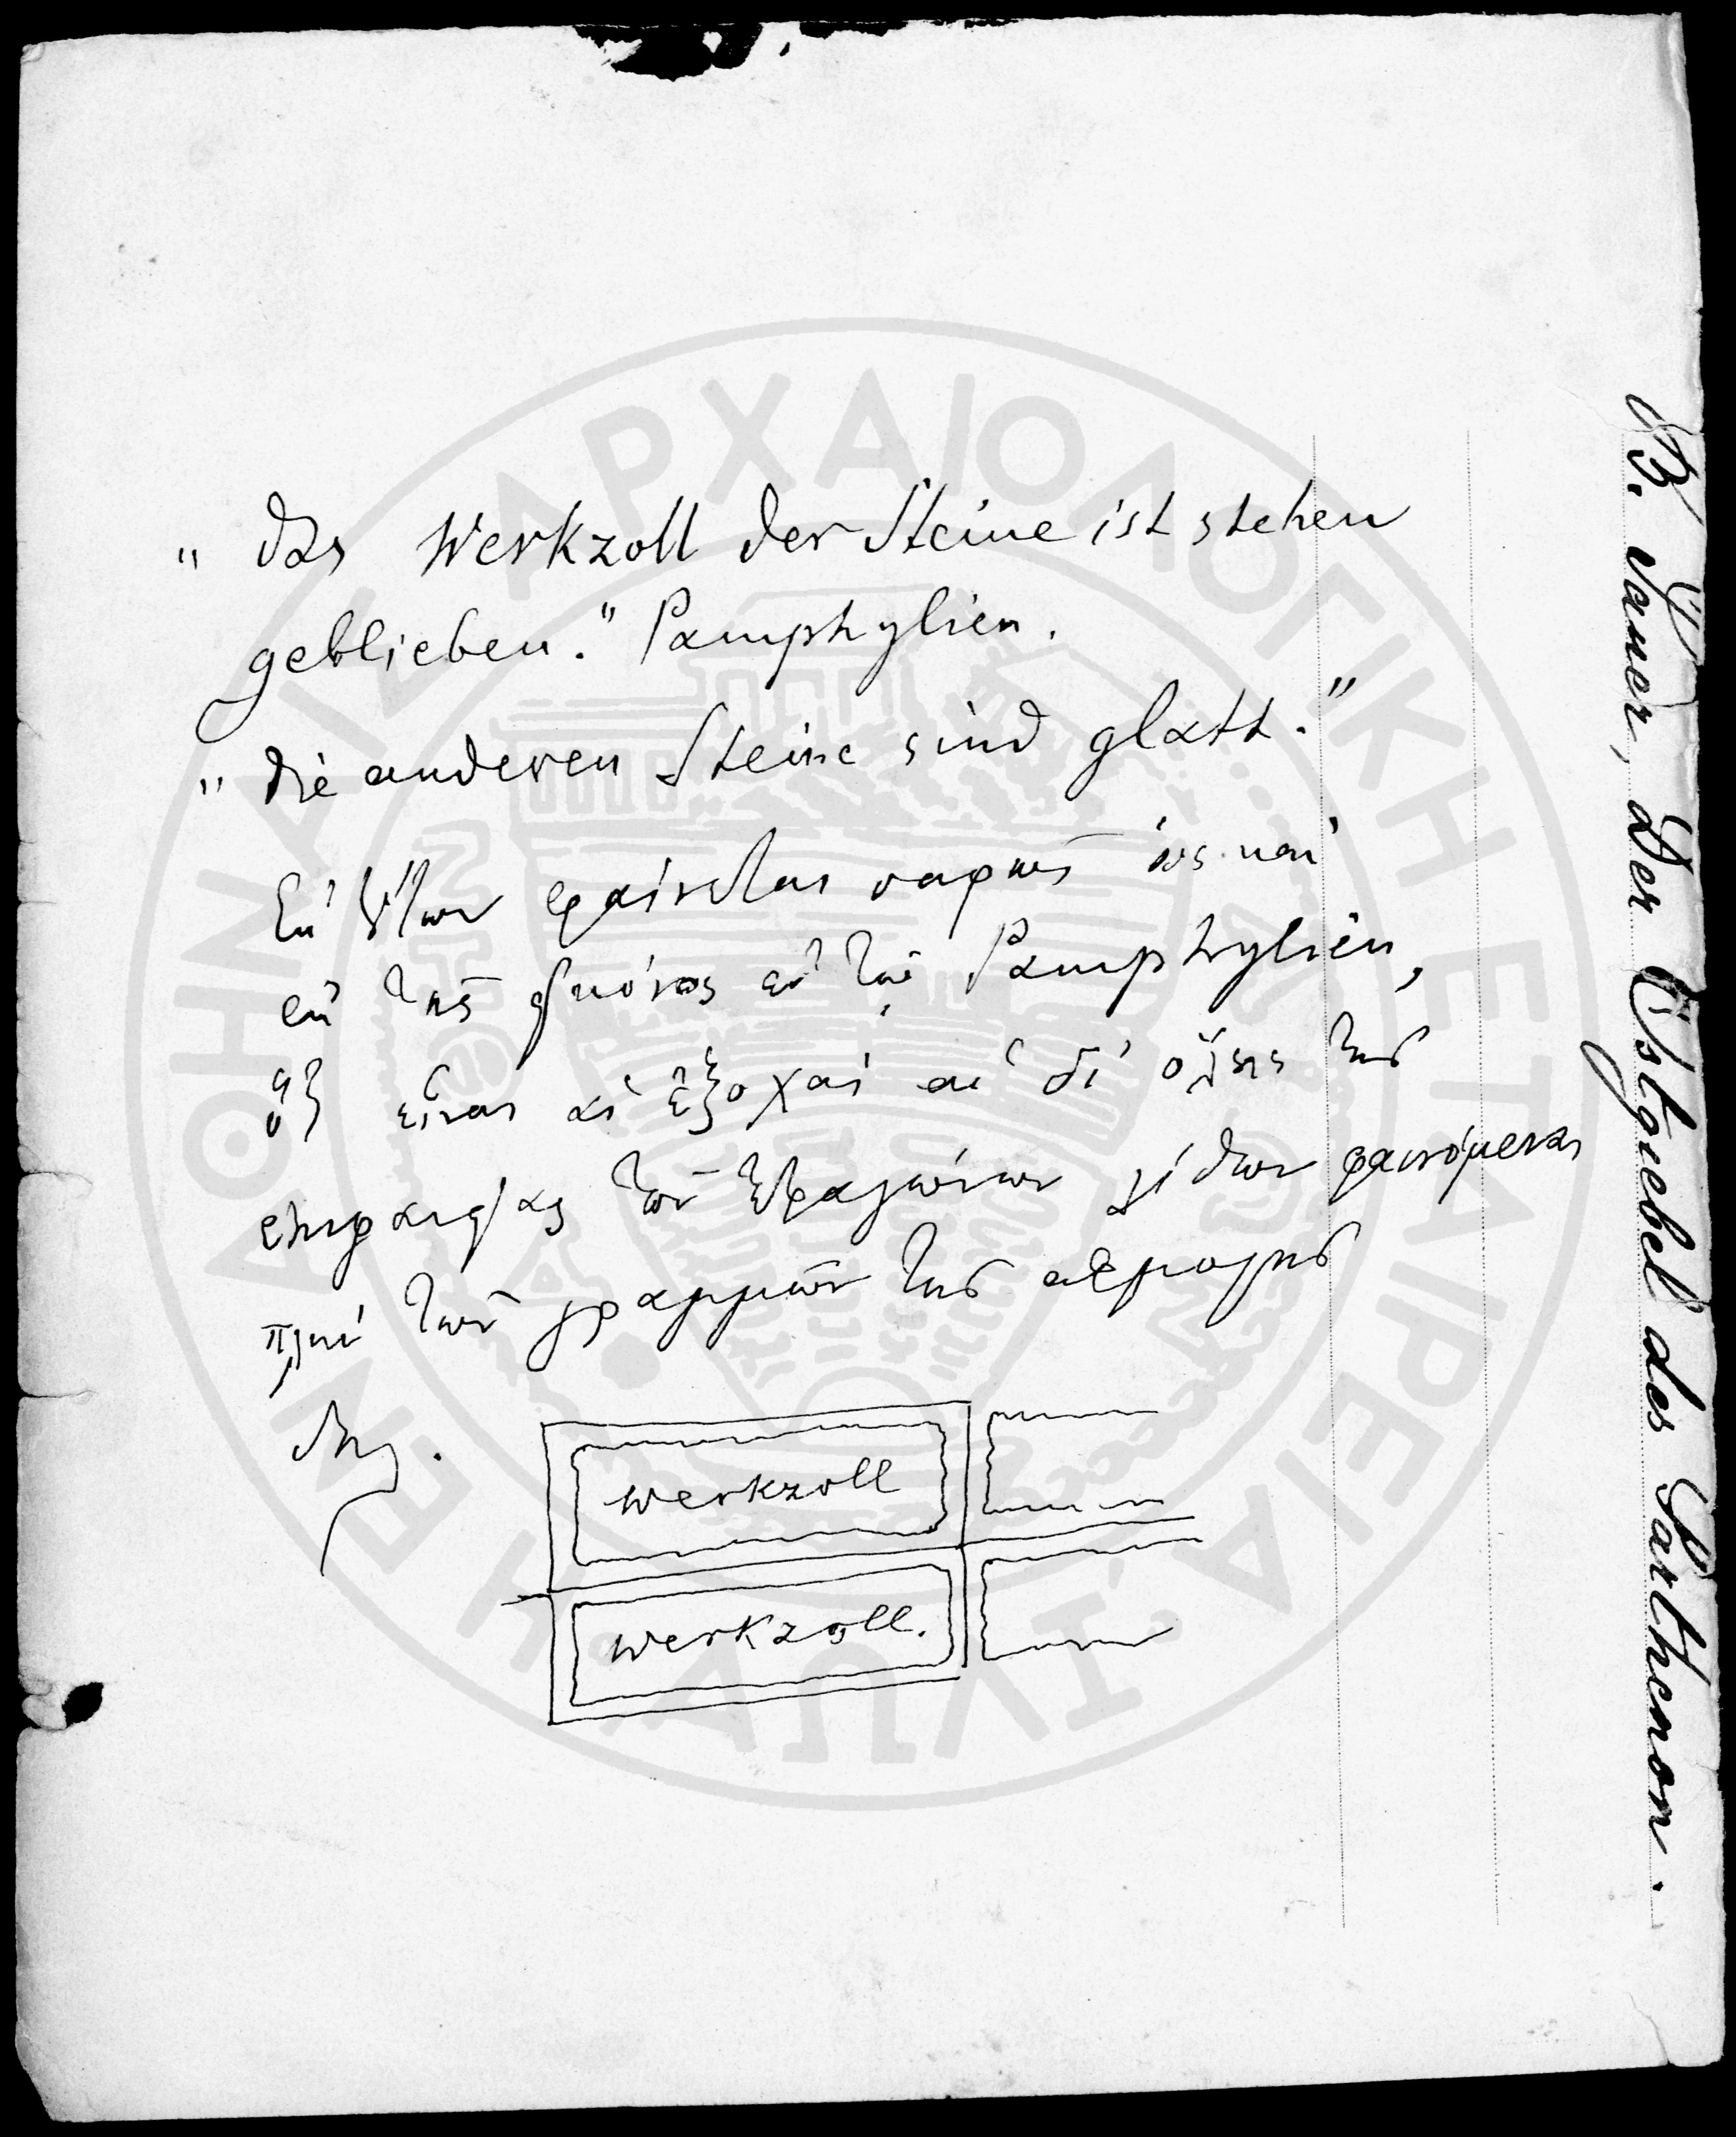 " das Werkzoll der Steine ist stehen
geblieben." Pamphylien.
" die anderen Steine sind glatt."
Ἐκ φαίνεται σαφῶς ὡς καὶ
ἐκ τῆς εἰκόνος ἐν τῷ Pamphylien,
ὅτι εἶναι αἱ ἐξοχαὶ αἱ δι' ὅλης τῆς
ἐπιφανείας τῶν τετραγώνων λίθων φαινόμεναι
πλὴν τῶν γραμμῶν τῆς συναρμογῆς
δηλ.
Werkzoll
Werkzoll.
B. Sauer, Der Ostgiebel des Parthenon.
ΕΝ ΑΘΗΝΑΙΣ ΑΡΧΑΙΟΛΟΓΙΚΗ ΕΤΑΙΡΕΙΑ